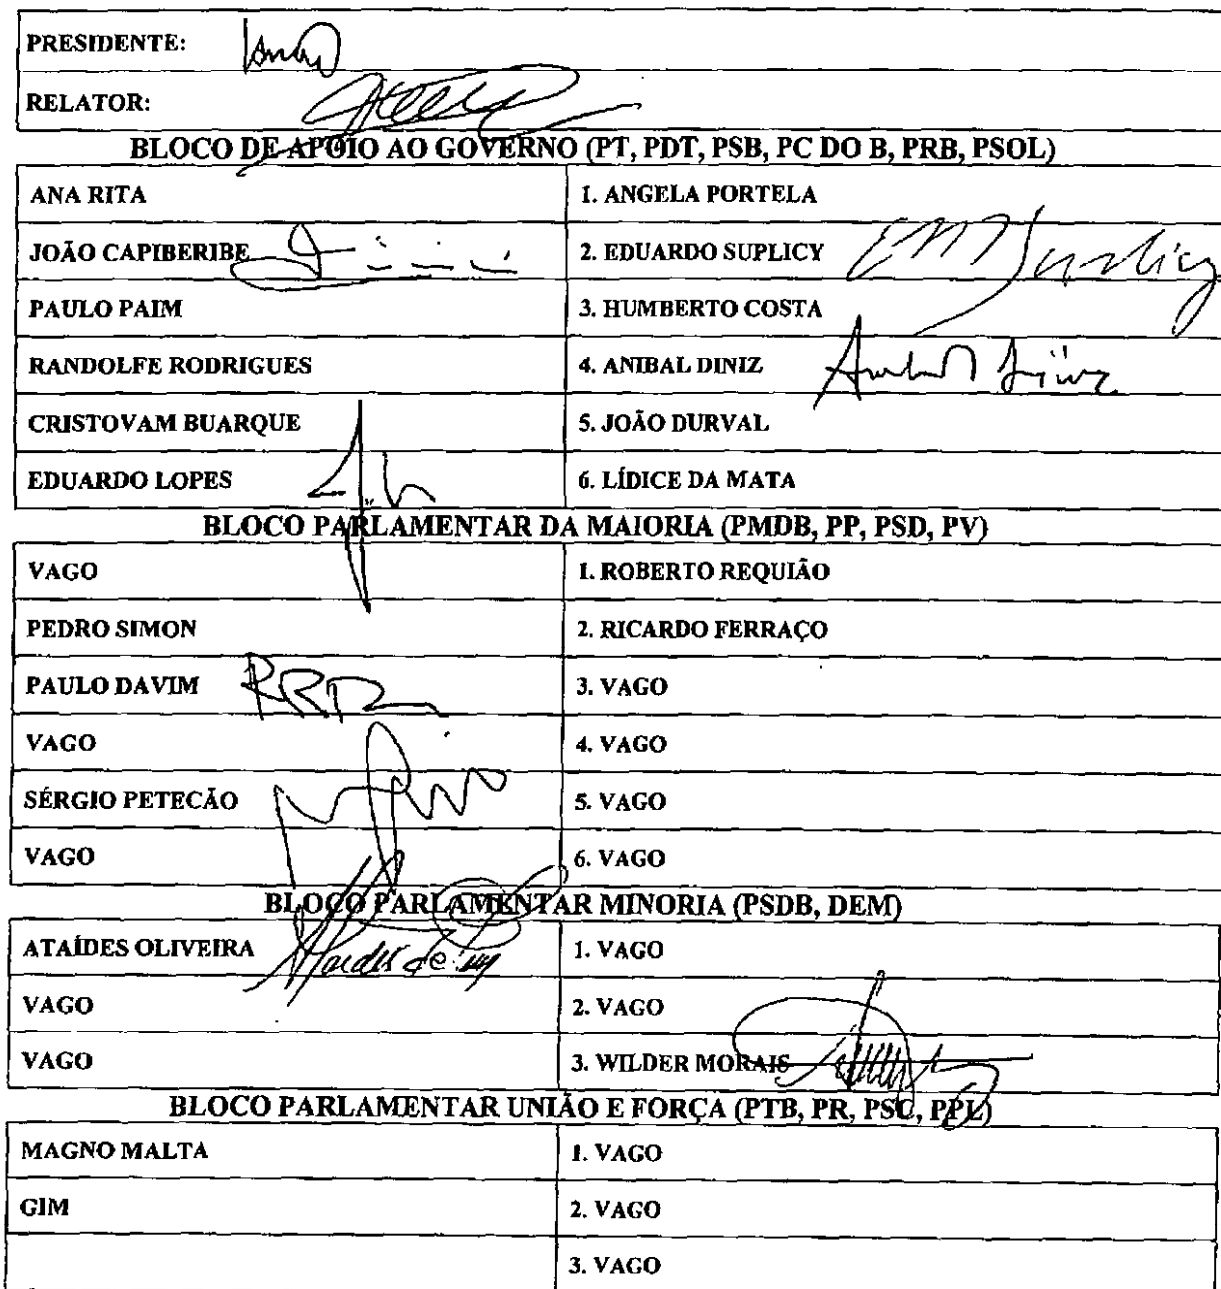 PRESIDENTE:
RELATOR:
BLOCO DE APOIO AO GOVERNO (PT, PDT, PSB, PC DO B, PRB, PSOL)
ANA RITA 1. ANGELA PORTELA
JOÃO CAPIBERIBE 2. EDUARDO SUPLICY EM Suplicy
PAULO PAIM 3. HUMBERTO COSTA
RANDOLFE RODRIGUES 4. ANIBAL DINIZ Anibal Diniz
CRISTOVAM BUARQUE 5. JOÃO DURVAL
EDUARDO LOPES 6. LÍDICE DA MATA
BLOCO PARLAMENTAR DA MAIORIA (PMDB, PP, PSD, PV)
VAGO 1. ROBERTO REQUIÃO
PEDRO SIMON 2. RICARDO FERRAÇO
PAULO DAVIM 3. VAGO
VAGO 4. VAGO
SÉRGIO PETECÃO 5. VAGO
VAGO 6. VAGO
BLOCO PARLAMENTAR MINORIA (PSDB, DEM)
ATAÍDES OLIVEIRA 1. VAGO
VAGO 2. VAGO
VAGO 3. WILDER MORAIS
BLOCO PARLAMENTAR UNIÃO E FORÇA (PTB, PR, PSC, PPL)
MAGNO MALTA 1. VAGO
GIM 2. VAGO
3. VAGO